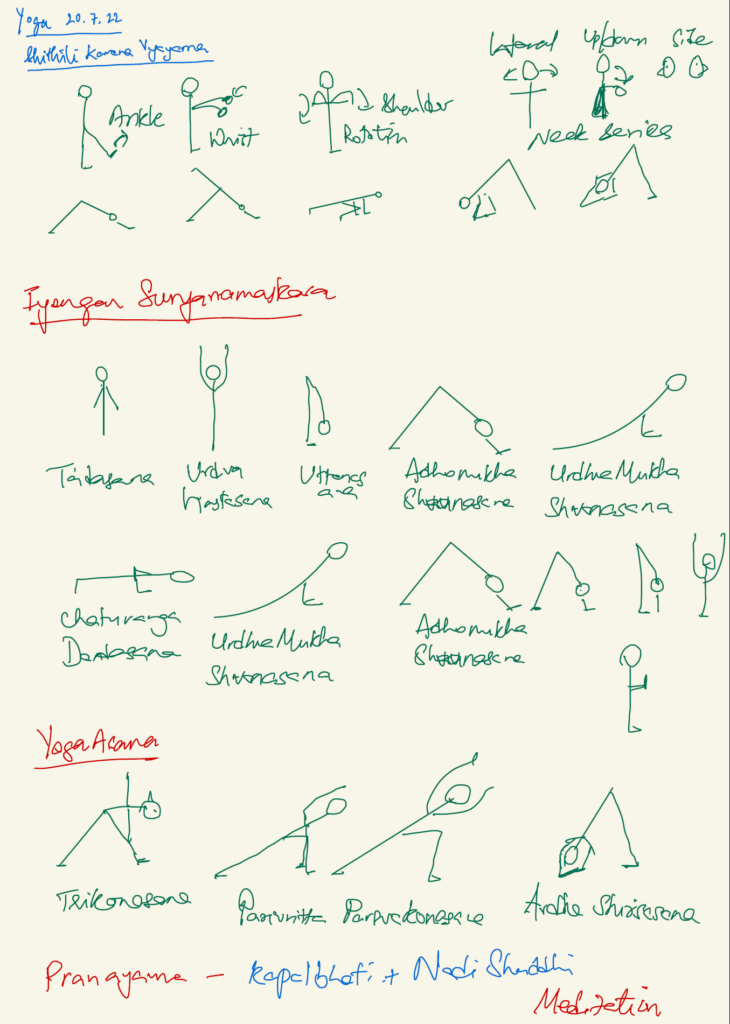 Yoga 20.7.22
Shithili Karana Vyayama
Lateral Up/down Side
Ankle
Wrist
Shoulder
Rotation
Neck Series
Iyengar Suryanamaskara
Tadasana
Urdva
Hastasana
Uttanas
ana
Adhomukha
Shvanasana
Urdhva Mukha
Shvanasana
Chaturanga
Dandasana
Urdhva Mukha
Shvanasana
Adhomukha
Shvanasana
Yoga Asana
Trikonasana
Parivritta Parsvakonasana
Ardha Shirsasana
Pranayama - Kapalbhati + Nadi Shuddhi
Meditation